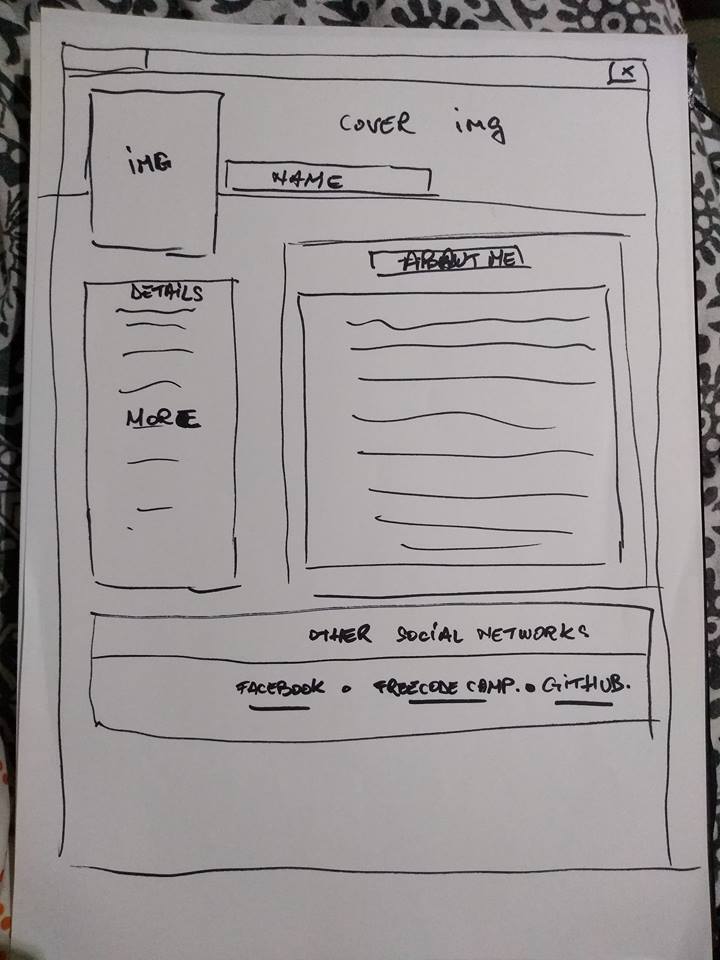 X
COVER img
iMG
NAME
ABOUT ME
DETAILS
MORE
OTHER SOCiAL NETWORKS
FACEBOOK • FREECODE CAMP. • GiTHUB.